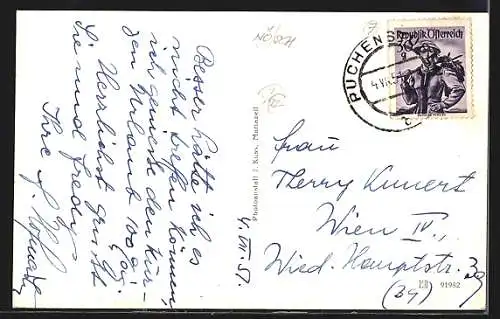 Besser hätte ich es
nicht treffen können
ich genieße den kur-
zen Urlaub 100%ig.
Herzlichst grüßt
Sie mal
Ihre
4. VII. 51.
Photoanstalt J. Kuss, Mariazell
PUCHENST
Republik Österreich
Frau
Therry Kunert
Wien IV.,
Wied. Hauptstr.
39
(39)
91982